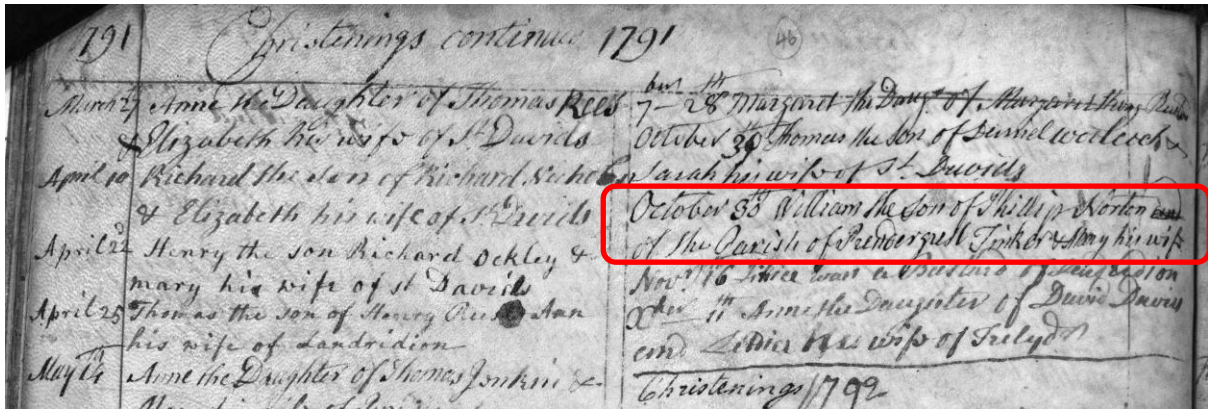 1791 Christenings continued 1791 46
March 27 Anne the Daughter of Thomas Rees
& Elizabeth his wife of St Davids
April 10 Richard the son of Richard
& Elizabeth his wife of St Davids
April 22 Henry the son Richard Ockley &
mary his wife of st Davids
April 25 Thomas the son of Henry Rees & Ann
his wife of Landridion
May Anne the Daughter of Thomas Jenkin &
ber th
7 - 28 Margaret the Daug. of Margaret
October 30th Thomas the son of Daniel Woolcock &
Sarah his wife of St Davids
October 30th William the Son of Phillip Norton and
of the Parish of Prendergrest Tinker & Mary his wife
Novr. 16 a Bastard of
Xber 11 Anne the Daughter of David Davies
and Lettice his wife of
Christenings 1792